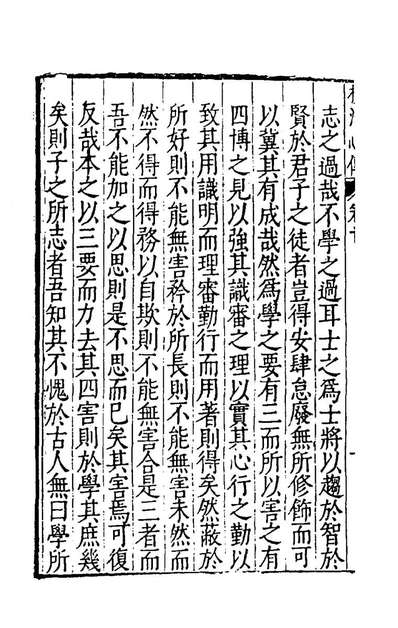 志之過哉不學之過耳士之爲士將以趨於智於
賢於君子之徒者豈得安肆怠廢無所修飾而可
以冀其有成哉然爲學之要有三而所以害之有
四博之見以強其識審之理以實其心行之勤以
致其用識明而理審勤行而用著則得矣然蔽於
所好則不能無害矜於所長則不能無害未然而
然不得而得務以自欺則不能無害合是三者而
吾不能加之以思則是不思而已矣其害焉可復
反哉本之以三要而力去其四害則於學其庶幾
矣則子之所志者吾知其不愧於古人無曰學所